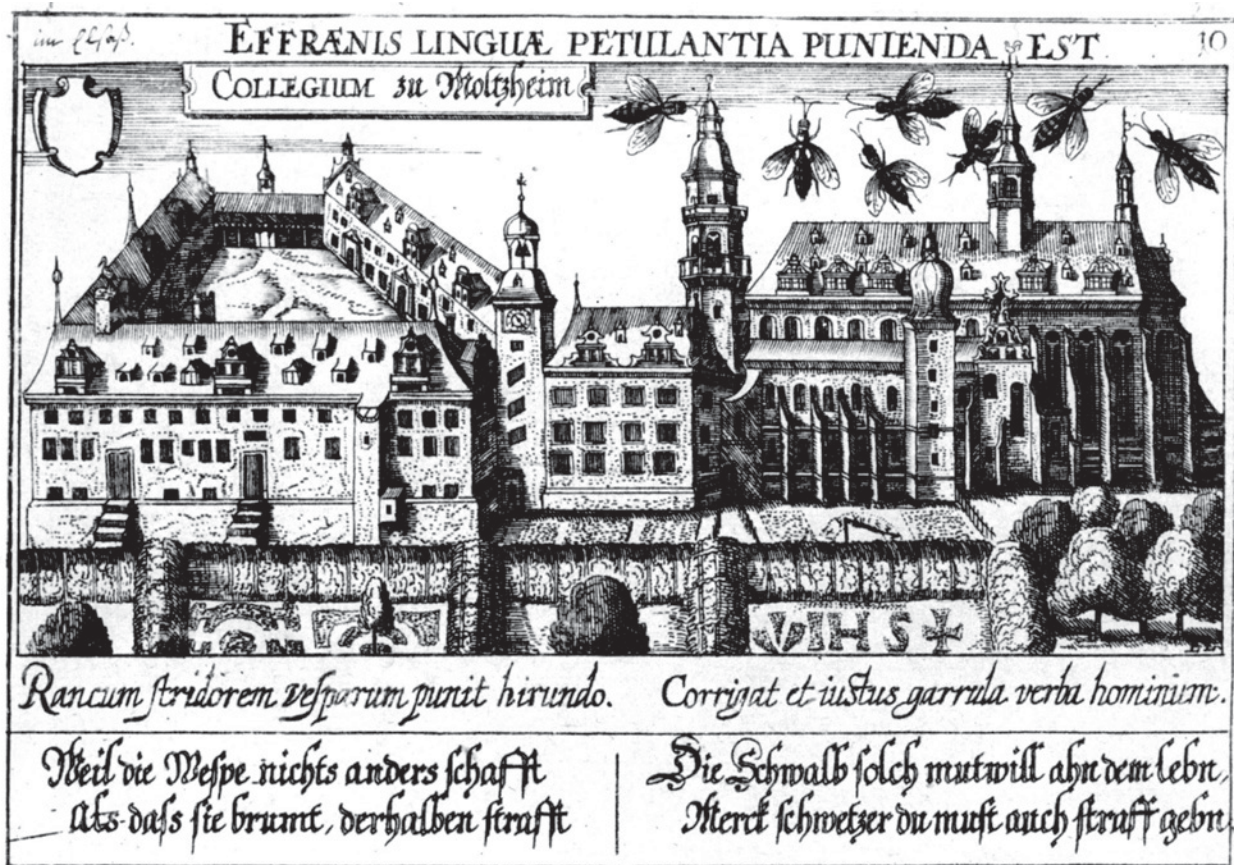 im Elsaß.
EFFRÆNIS LINGUÆ PETULANTIA PUNIENDA EST
10
COLLEGIUM zu Moltzheim
IHS
Rancum stridorem vesparum punit hirundo. Corrigat et iustus garrula verba hominum.
Weil die Wespe nichts anders schafft
Als dass sie brumt, derhalben strafft
Die Schwalb solch mutwill ahn dem lebn,
Merck schwetzer du must auch straff gebn